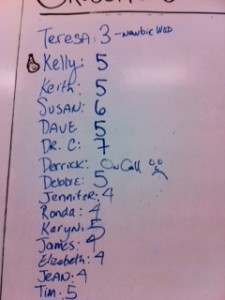 Teresa: 3 -
Kelly: 5
Keith: 5
Susan: 6
Dave 5
Dr. C: 7
Derrick: On Call
Debbie: 5
Jennifer: 4
Ronda: 4
Karyn: 5
James: 4
Elizabeth: 4
Jean: 4
Tim: 5